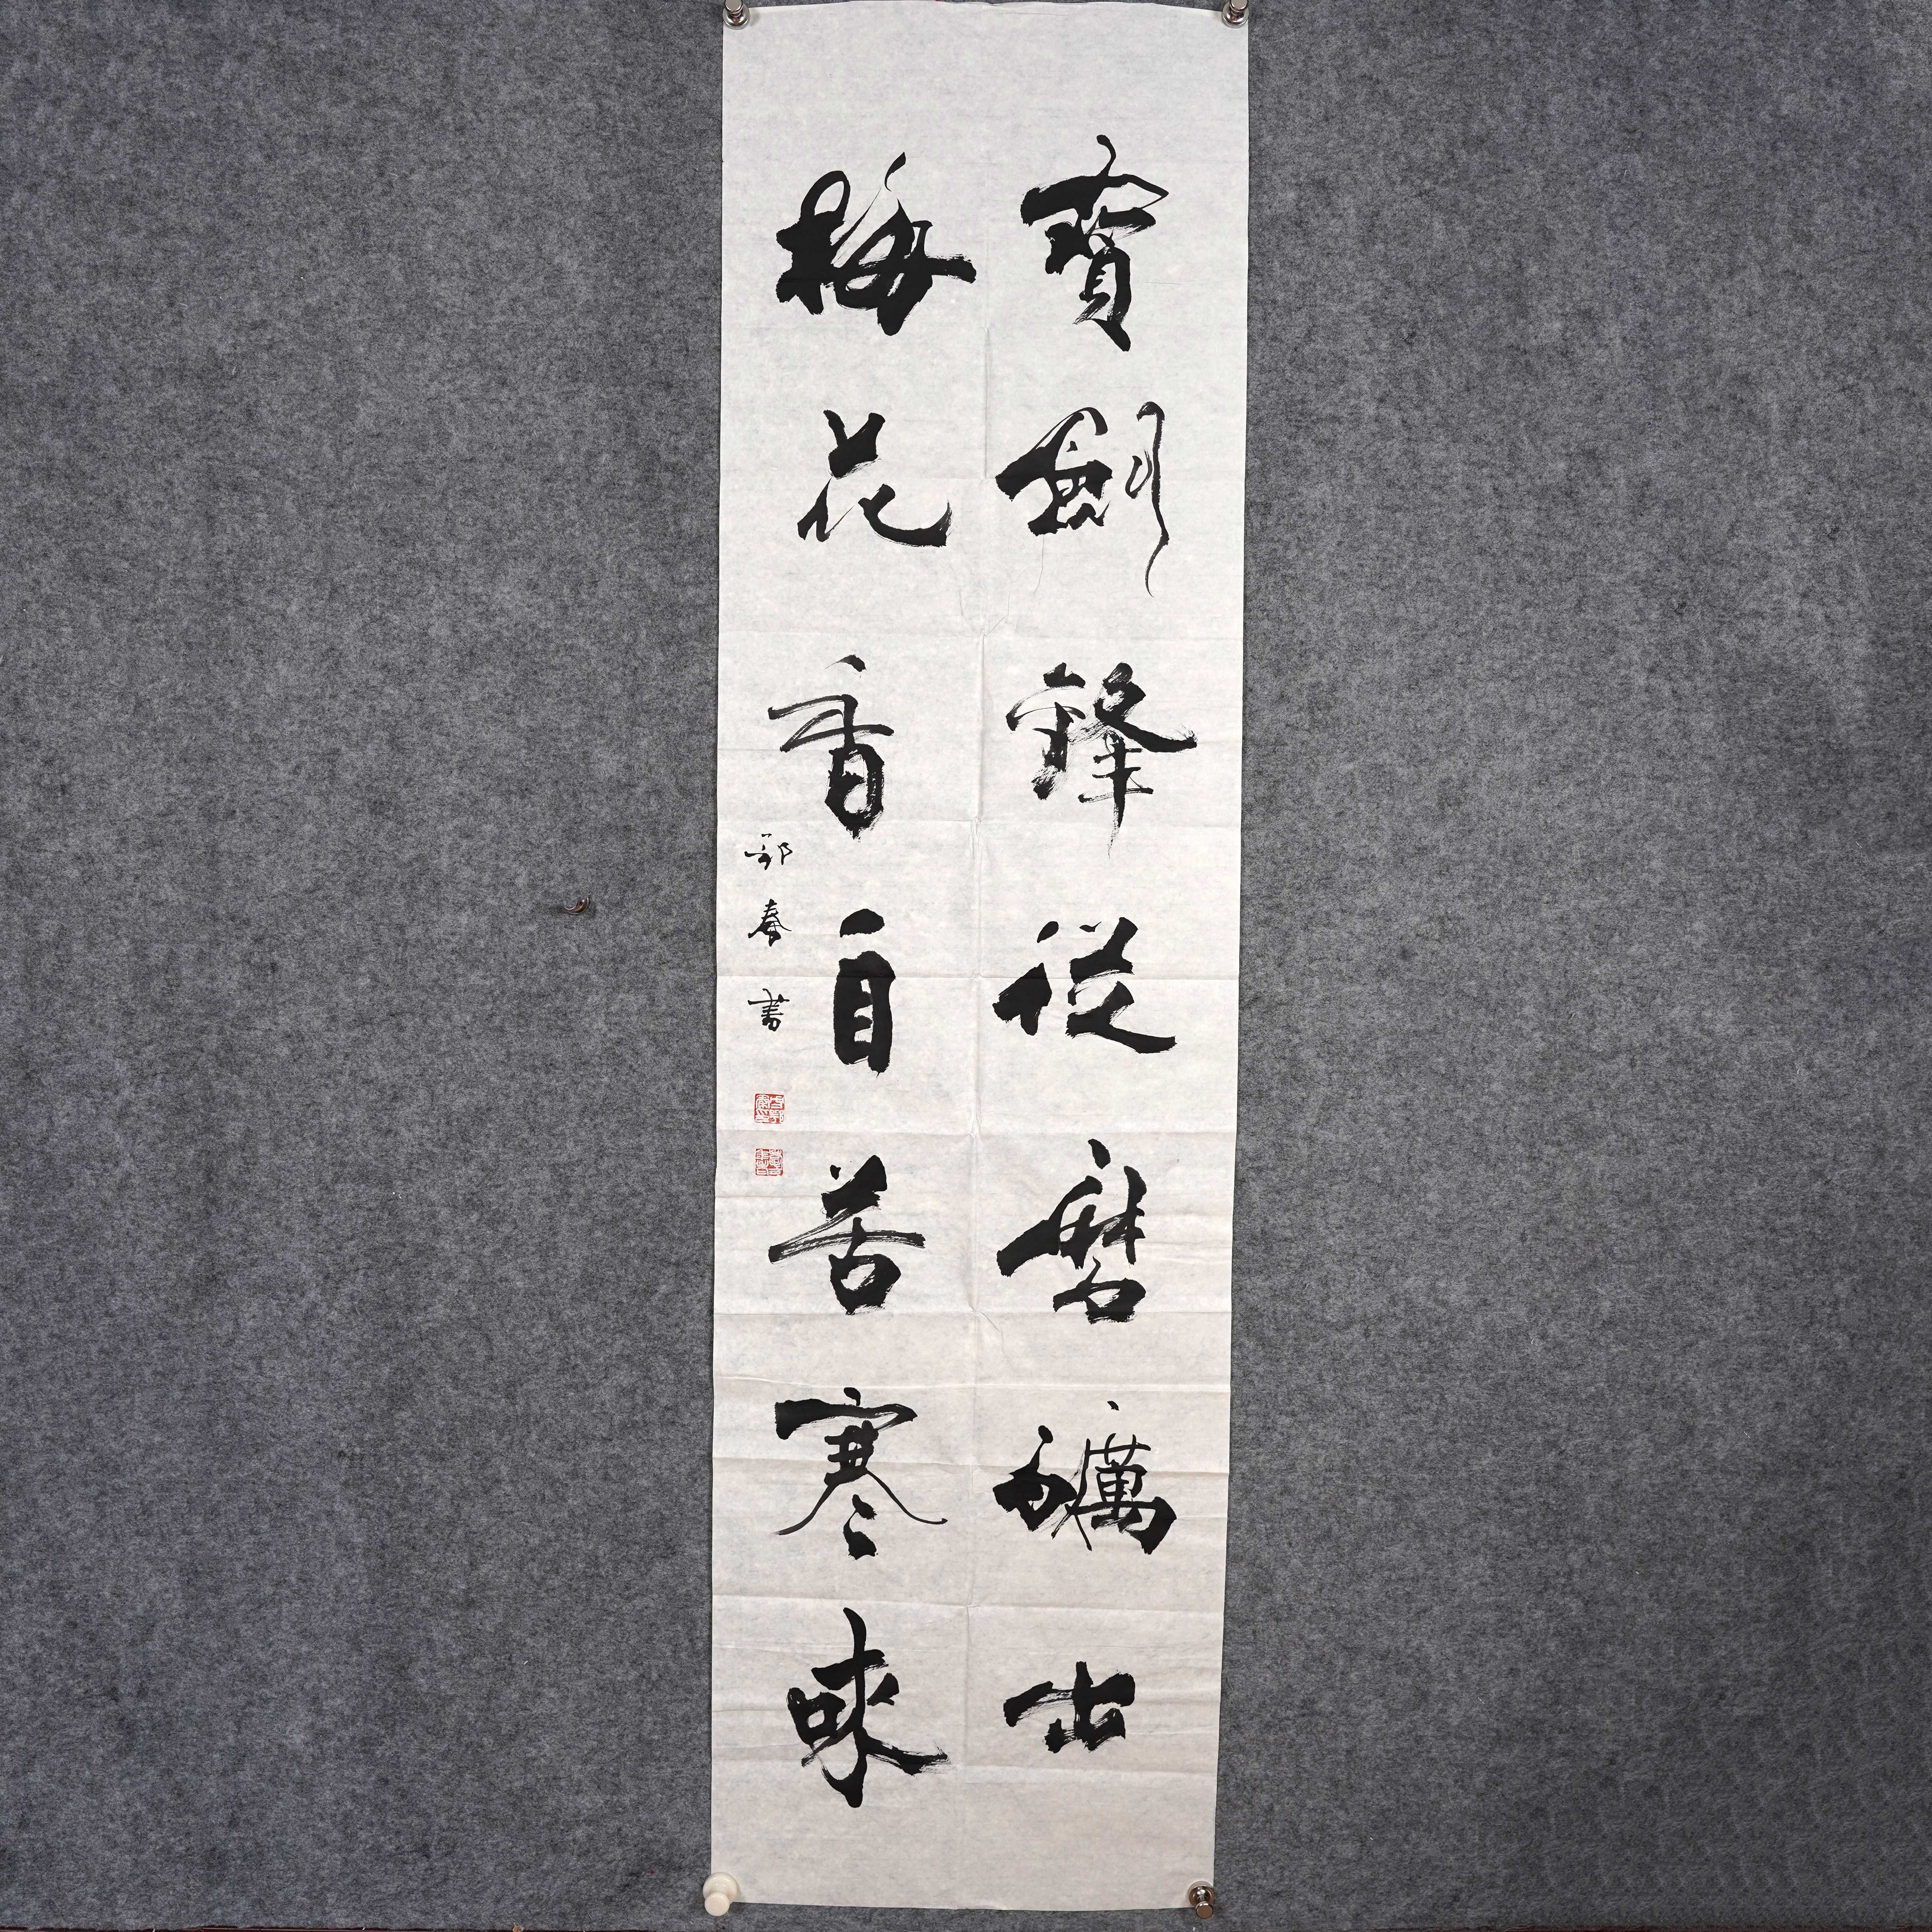 寶劍鋒從磨礪出
梅花香自苦寒來
春書